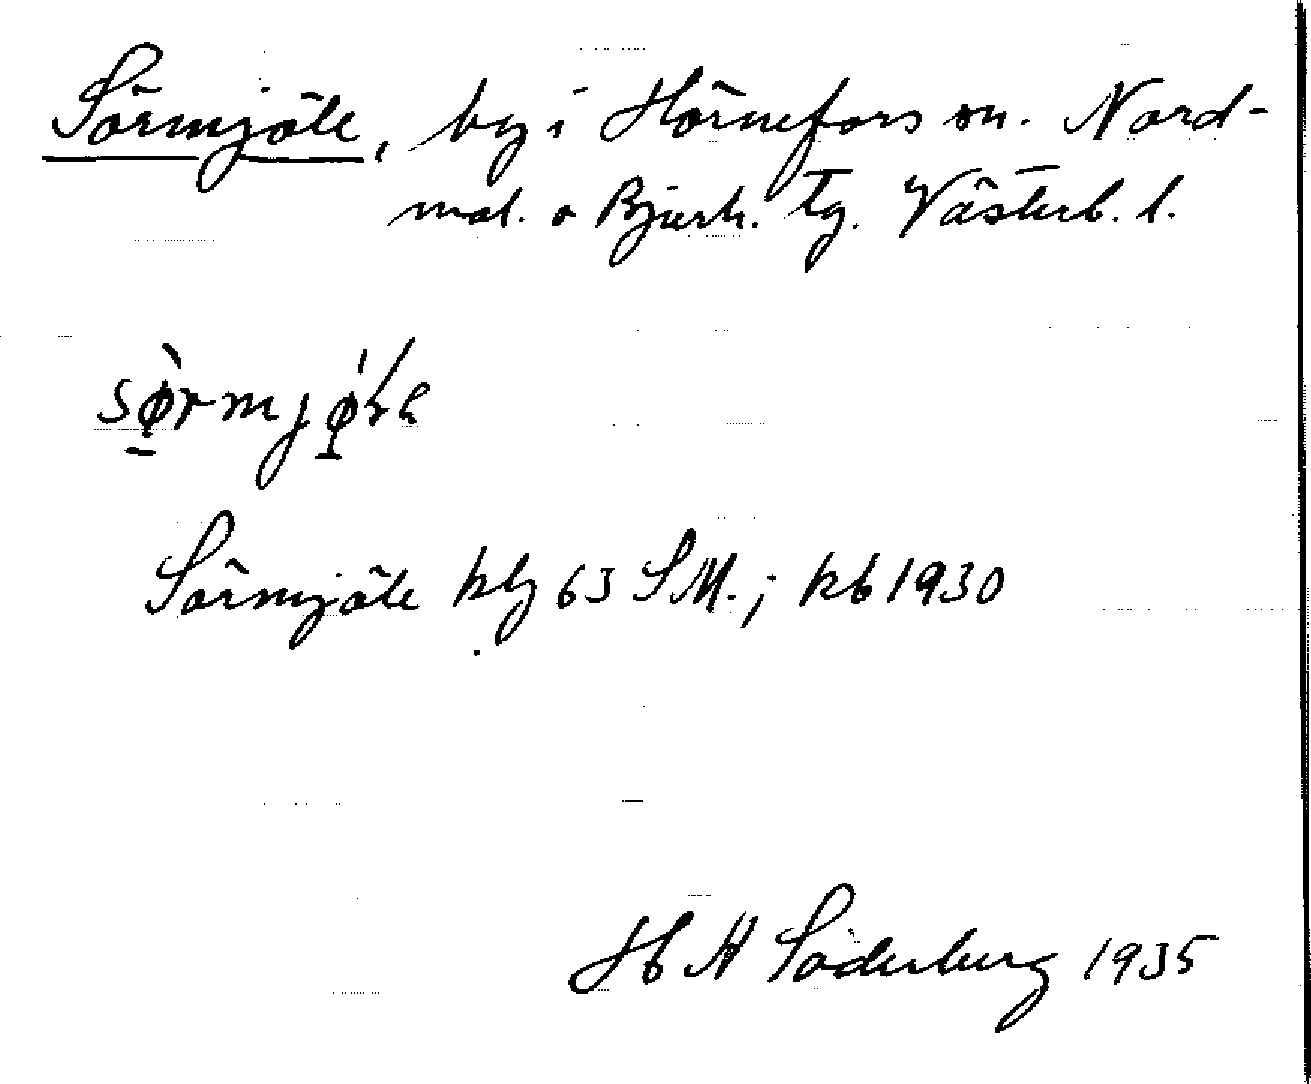 Sörmjöle, by i Hörnefors sn. Nord-
mal. o Bjurh. tg. Västerb. l.
sø̀rmjǿɫe
Sörmjöle klj 63 SM.; kb 1930
H A Söderberg 1935